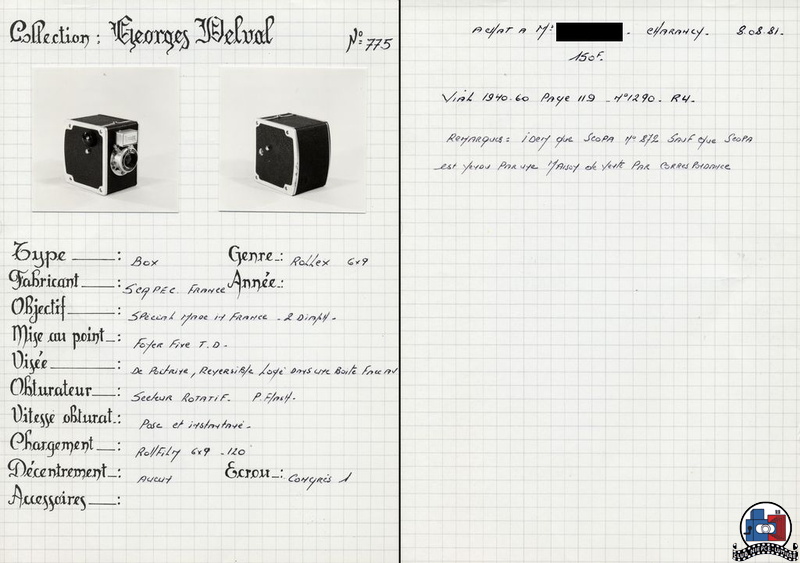 Collection : Georges Delval
N° 775
Type : Box
Genre : Rollex 6x9
Fabricant : SCAPEC FRANCE
Année :
Objectif : Spécial Made in France - 2 Diaph.
Mise au point : Foyer Fixe T.D.
Visée : De Poitrine, Réversible Logé dans une Boite
Obturateur : Secteur Rotatif. P.Flash.
Vitesse obturat. : Pose et instantané.
Chargement : Rollfilm 6x9 - 120
Décentrement : Aucun
Ecrou : Congrès 1
Accessoires :
Achat a Mr . CHARANCY. 8.08.81.
150F.
Vial 1940-60 Page 119 - n°1290 - R4.
Remarques : idem que Scopa n° 872 Sauf que Scopa
est vendu par une Maison de Vente Par Correspondance